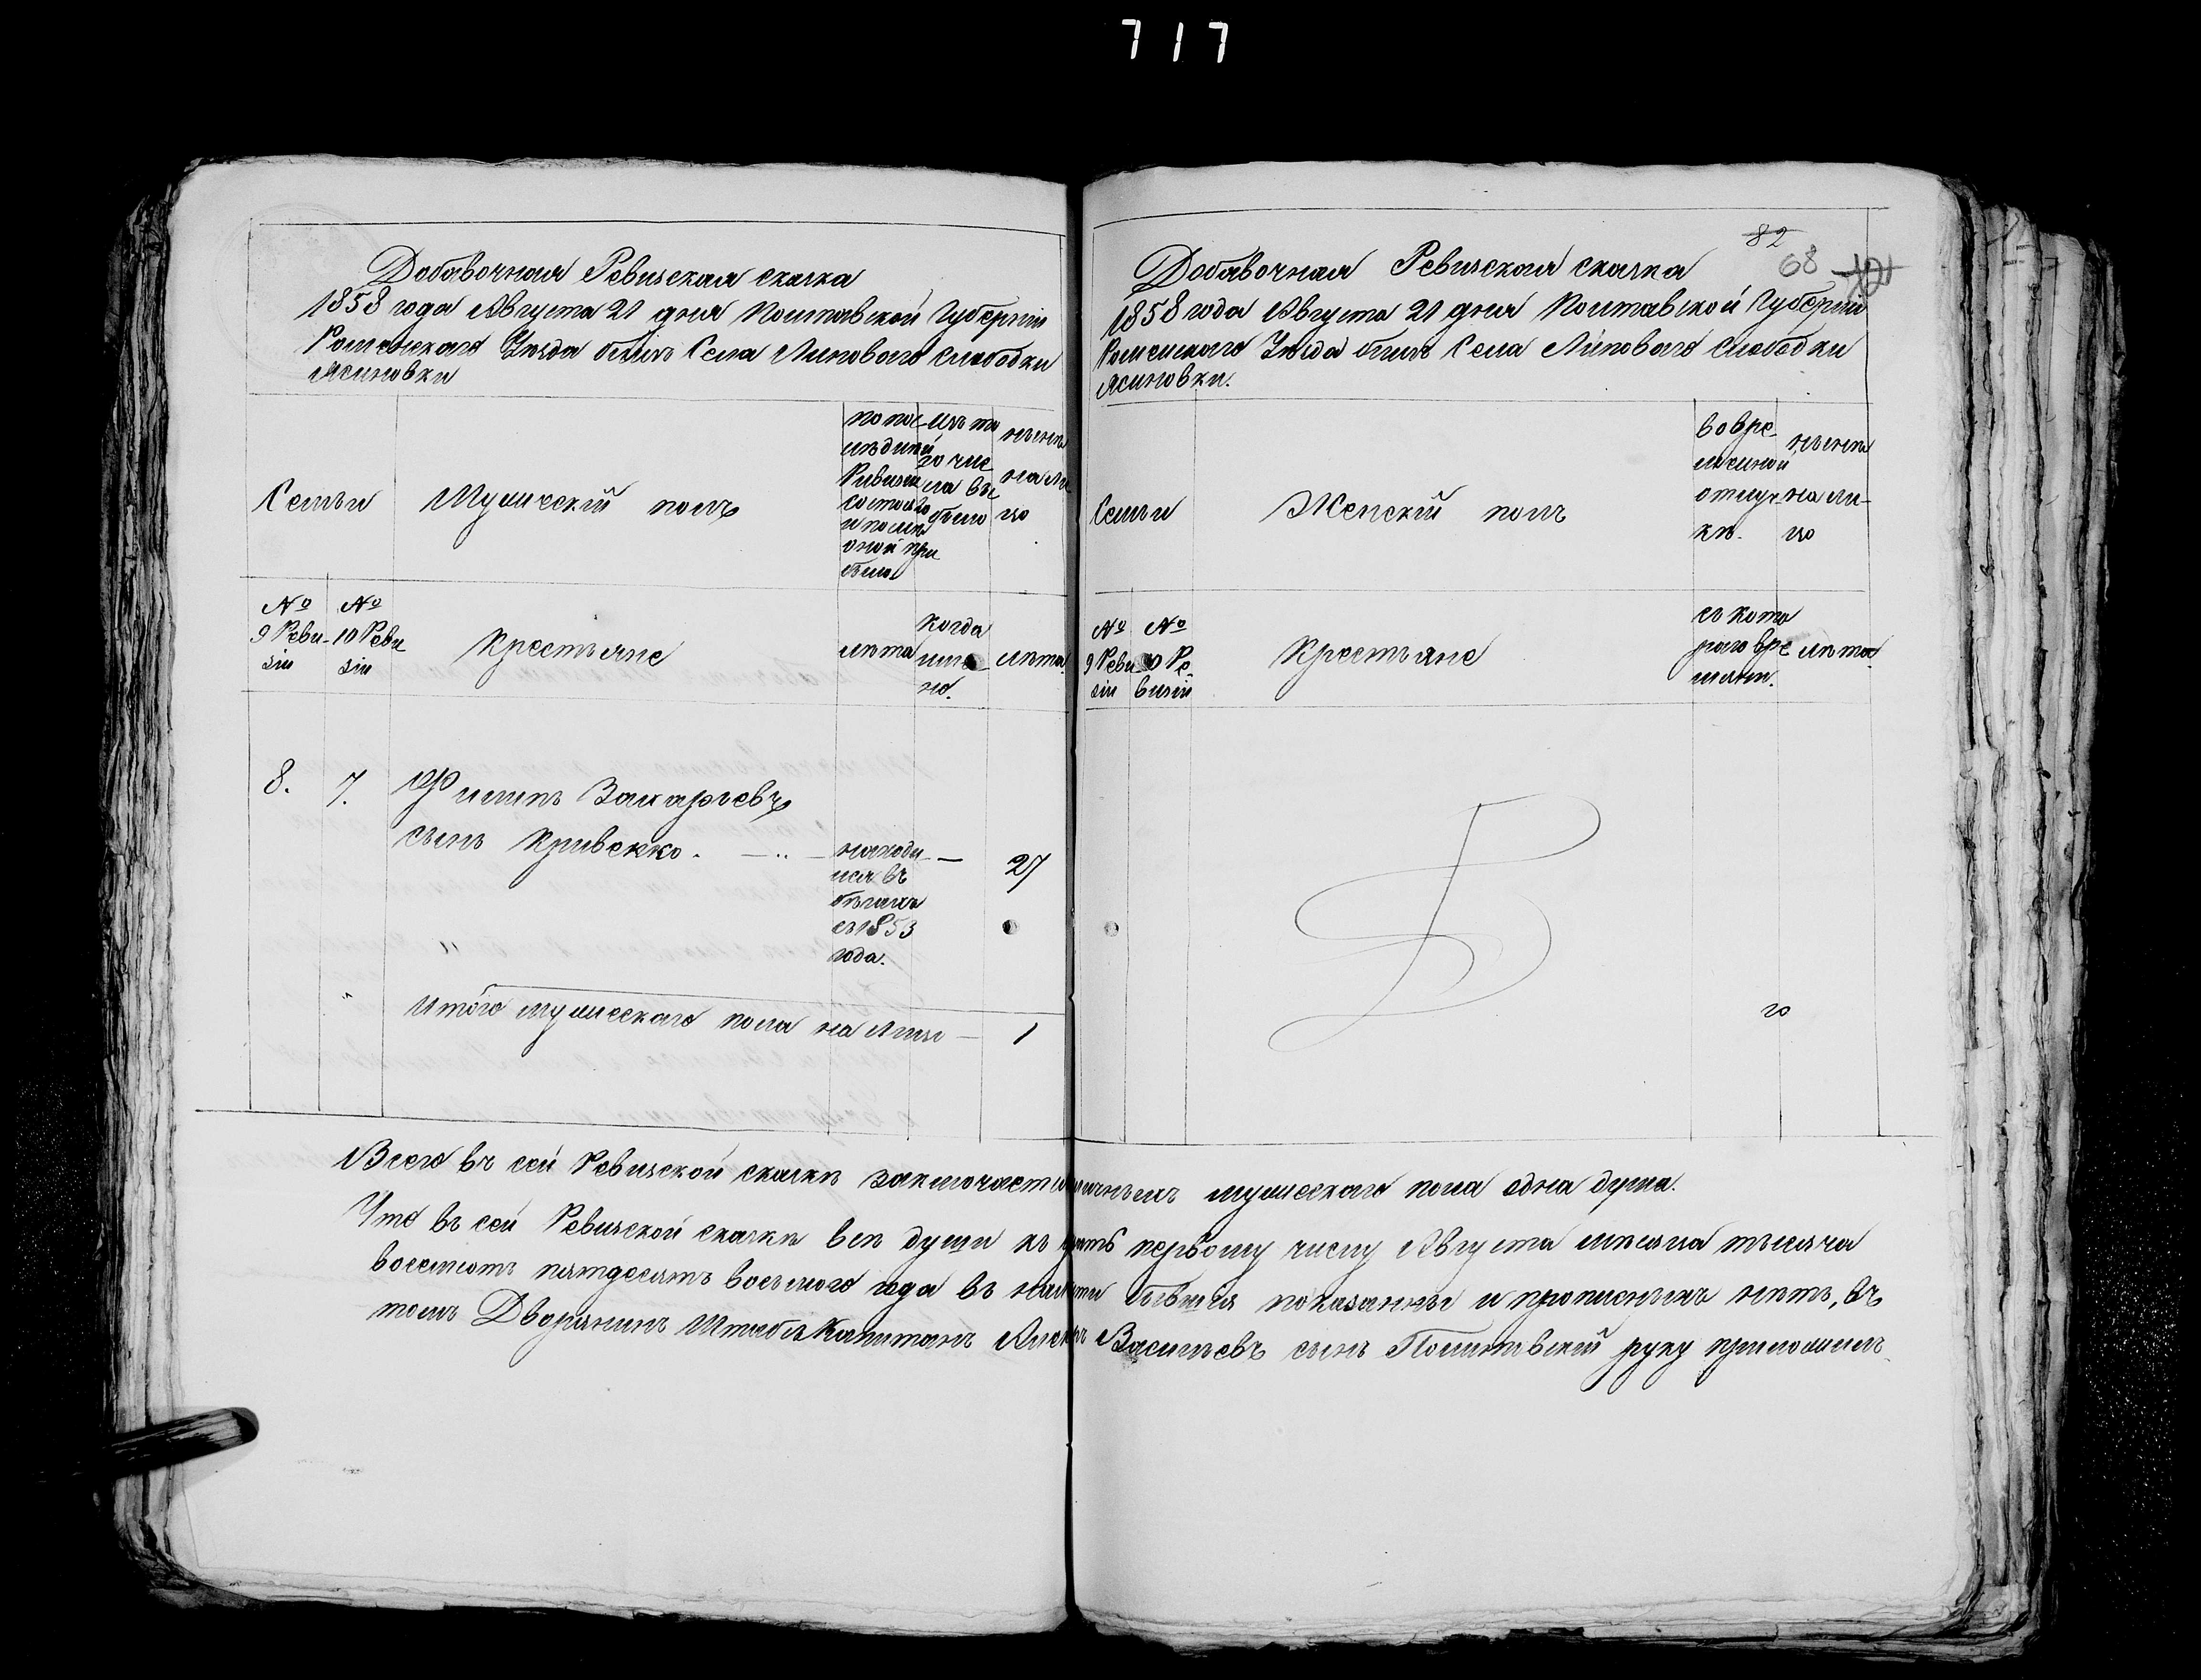 717
Добавочная Ревизская сказка
1858 года Августа 21 дня Полтавской Губерніи
Роменскаго Уѣзда близъ Села Липоваго Слободки
Ясиновки
Семьи
Мужескій полъ
по пос-
лѣдней
Ревизіи
состояло
и послѣ
оной при
было
изъ то
го чис
ла вы
было
нынѣ
на ли
цо
№
9 Реви-
зіи
№
10 Реви
зіи
Крестьяне
лѣта
когда
имен
но.
лѣта.
8.
7.
Филипъ Захарьевъ
сынъ Кривенко. — „ —
находи
лся въ
бѣгахъ
съ 1853
года.
—
27
Итого мужескаго пола на лицо —
1
82
68
Добавочная Ревизская сказка
1858 года Августа 21 дня Полтавской Губерніи
Роменскаго Уѣзда близъ Села Липоваго Слободки
Ясиновки.
Семьи
Женскій полъ
во вре-
менной
отлуч-
кѣ.
нынѣ
на ли-
цо
№
9 Реви
зіи
№
10 Ре-
визіи
Крестьяне
съ кото
раго вре
мени.
лѣта.
Всего въ сей Ревизской сказкѣ заключается мужескаго пола одна душа.
Что въ сей Ревизской сказкѣ всѣ души къ первому числу Августа мѣсяца тысяча
восемсотъ пятдесятъ восьмого года въ наличности бывшія показанны и прописныхъ нѣтъ, въ
томъ Дворянинъ Штабсъ Капитанъ Васильевъ сынъ руку приложилъ.